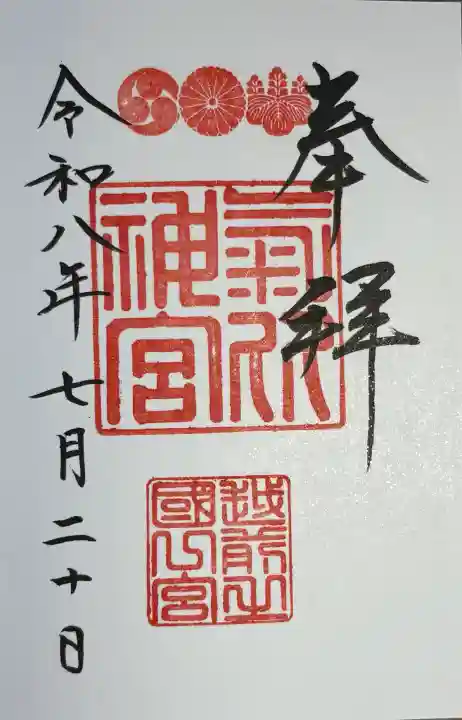 奉拝
氣比
神宮
越前之
國一宮
令和八年七月二十日